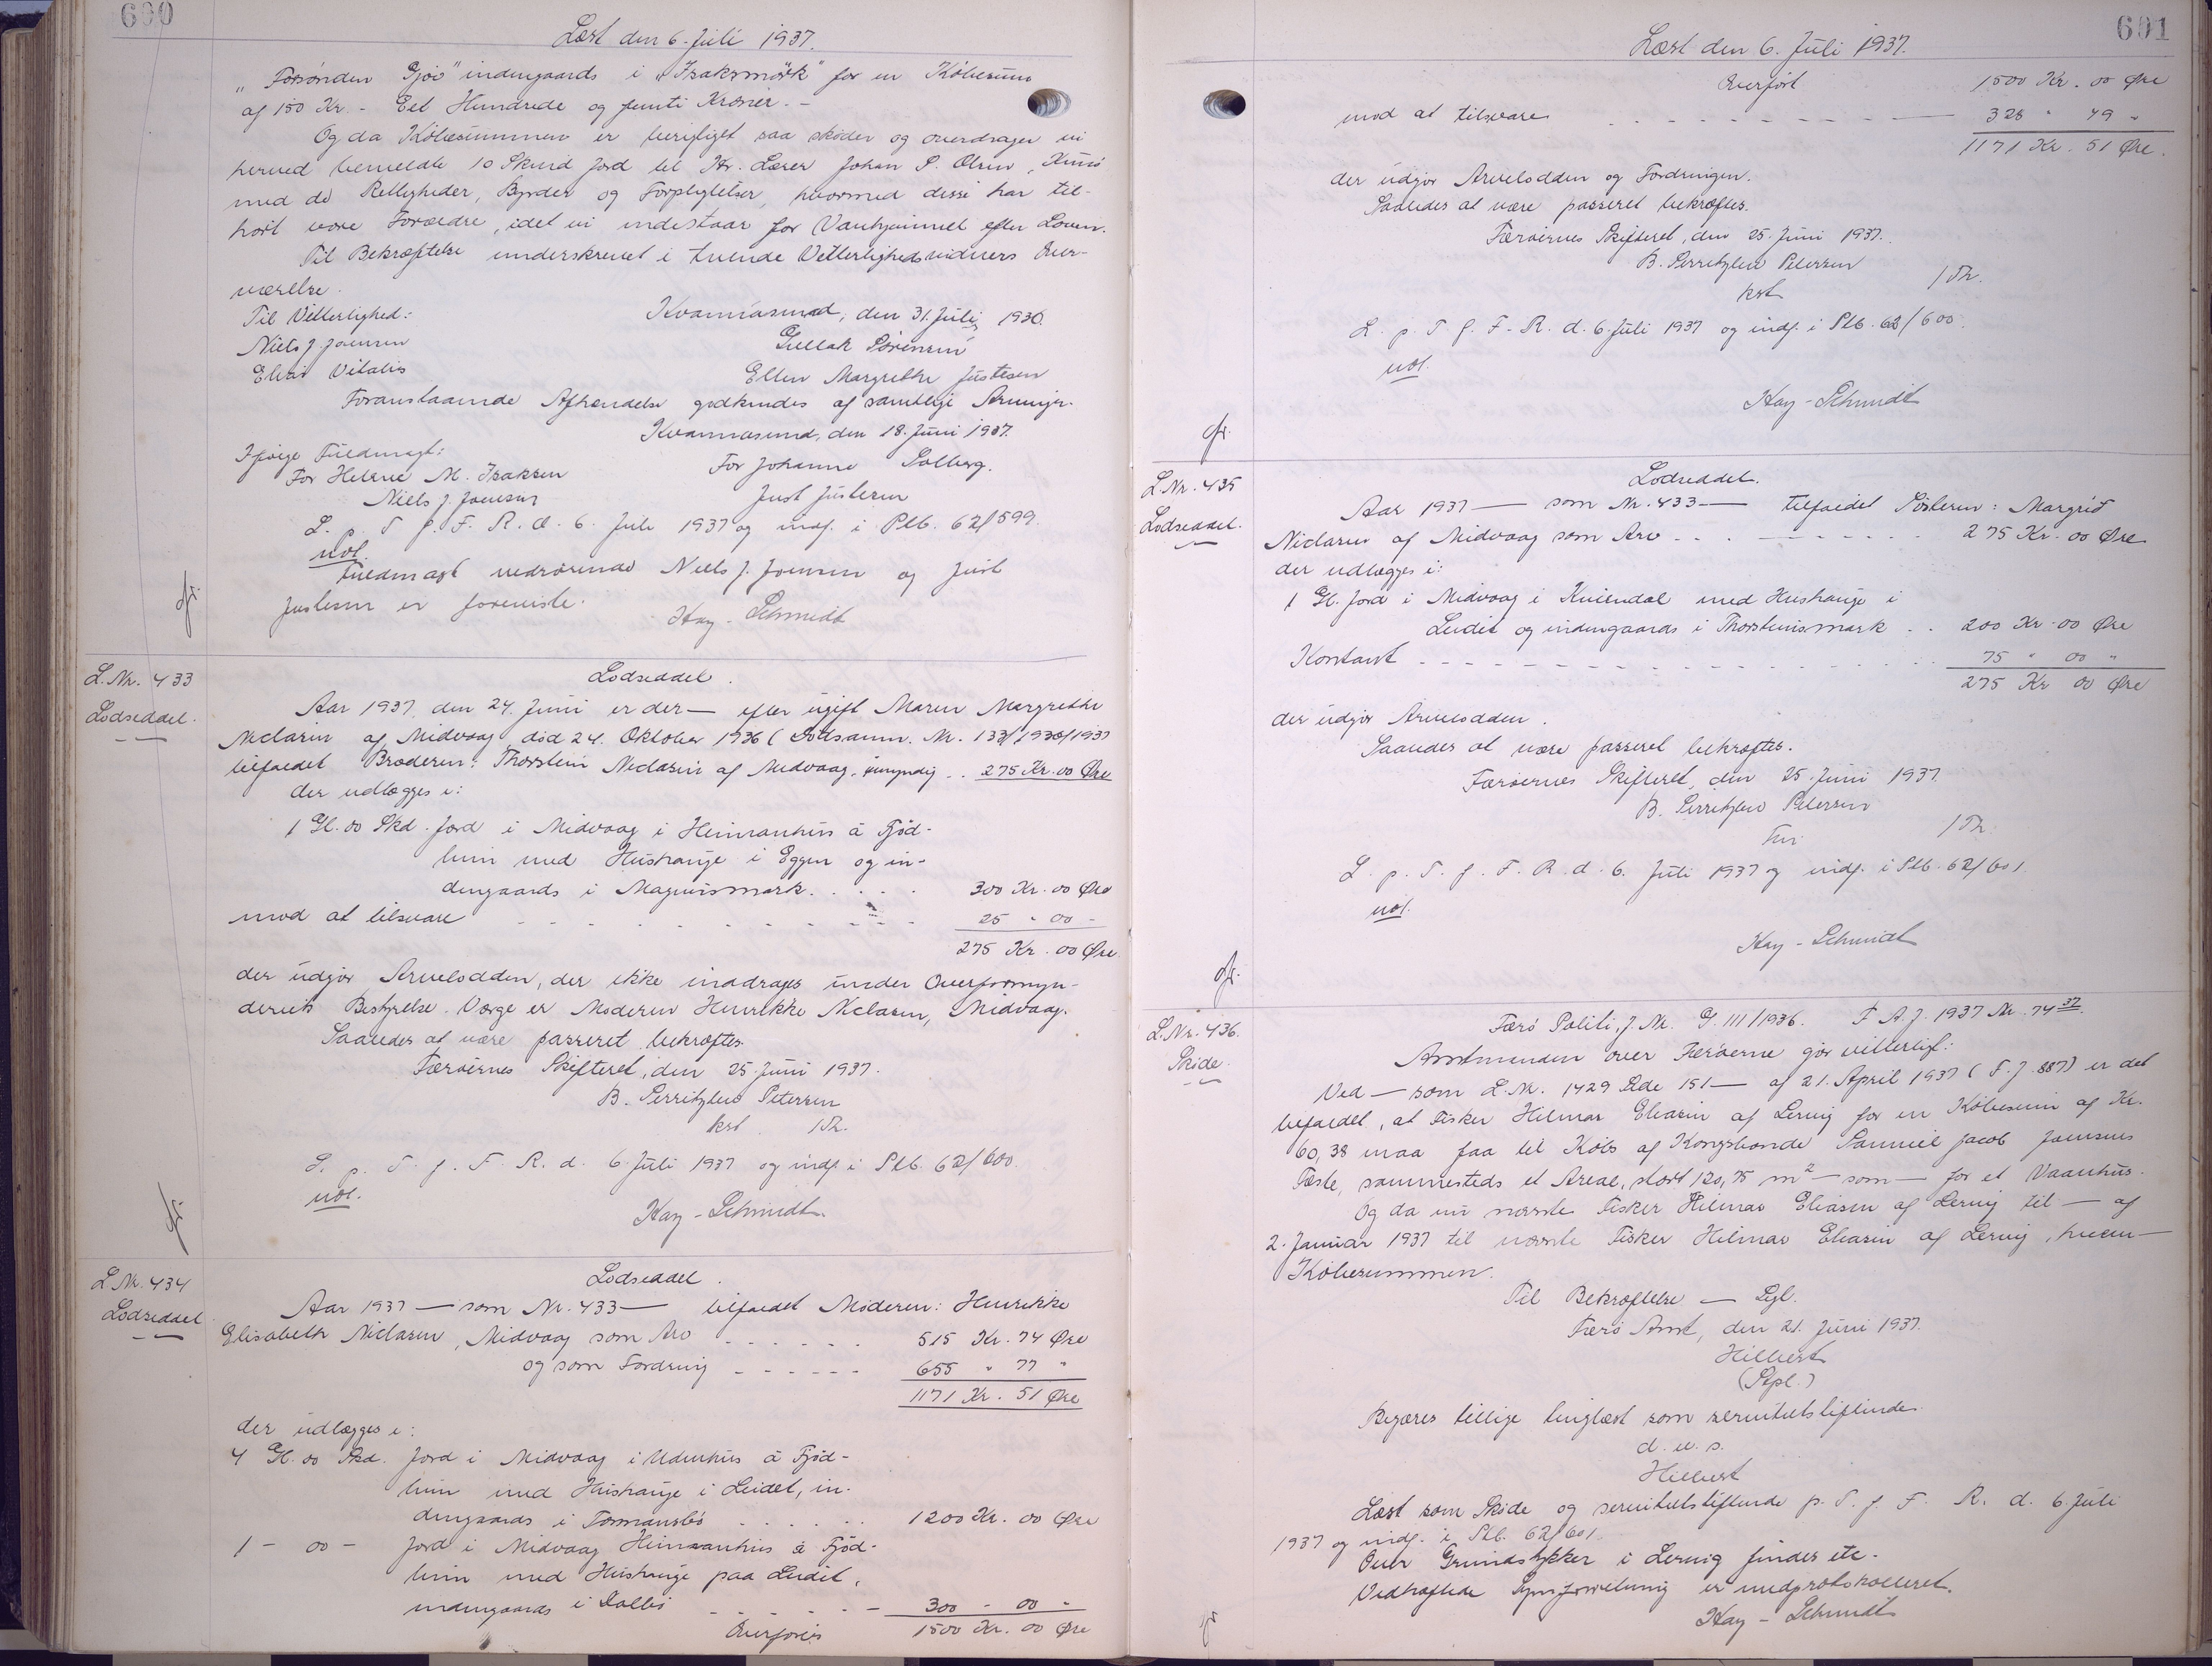 600
Læst den 6. Juli 1937.
"Forsønden Gjov" indengaards i "Isaksmørk" for en Købesum
af 150 Kr. - Eet Hundrede og femti Kroner. -
Og da Købesummen er berigtiget saa skøder og overdrager vi
herved bemeldte 10 Skind Jord til Hr. Lærer Johan P. Olsen,
med de Rettigheder, Byrder og Forpligtelser, hvormed disse har til-
hørt vore Forældre, idet vi indestaar for Vanhjemmel efter Loven.
Til Bekræftelse underskrevet i tvende Vitterlighedsvidners Over-
værelse.
Til Vitterlighed: Kvannasund, den 31. Juli 1930.
Niels J. Joensen Gullak Sørensen
Elias Vitalis Ellen Margrethe Justesen
Foranstaaende Afhændelse godkendes af samtlige Arvinger.
Kvannasund, den 18. Juni 1937.
Ifølge Fuldmagt:
For Helene M. Isaksen For Johanne Solberg.
Niels J. Joensen Just Justesen
L. p. T. f. F. R. d. 6. Juli 1937 og indf. i Plb. 62/599.
uol.
Fuldmagt vedrørende Niels J. Joensen og Just
Justesen er foreviste.
Hay-Schmidt
L.Nr. 433
Lodseddel.
Lodseddel.
Aar 1937, den 24. Juni er der — efter ugift Maren Margrethe
Niclasen af Midvaag død 24. Oktober 1936 ( Nr. 133/1936/1937
tilfaldet Broderen: Thorstein Niclasen af Midvaag, umyndig .. 275 Kr. 00 Øre
der udlægges i:
1 Gl. 00 Skd. Jord i Midvaag i Heimanhus á Fjød-
lum med Hushauge i Eggen og in-
dengaards i Magnusmørk. . . . . 300 Kr. 00 Øre
mod at tilsvare - - - - - - - - 25 " 00 -
275 Kr. 00 Øre.
der udgør Arvelodden, der ikke inddrages under Overformyn-
deriets Bestyrelse. Værge er Moderen Henrikke Niclasen, Midvaag.
Saaledes at være passeret bekræftes.
Færøernes Skifteret, den 25. Juni 1937.
B. Serritzlew Petersen
kst 1 Th.
L. p. T. f. F. R. d. 6. Juli 1937 og indf. i Plb. 62/600.
uol.
Hay-Schmidt.
L.Nr. 434
Lodseddel
Lodseddel.
Aar 1937 — som Nr. 433 — tilfaldet Moderen: Henrikke
Elisabeth Niclasen, Midvaag som Arv - - - - - - 515 Kr. 74 Øre
og som Fordring - - - - - - 655 " 77 "
1171 Kr. 51 Øre
der udlægges i:
4 Gl. 00 Skd. Jord i Midvaag i Udenhus á Fjød-
lum med Hushauge i Leidet, in-
dengaards i Tormansbø - - - - - 1200 Kr. 00 Øre
1 - 00 - Jord i Midvaag Heimanhus á Fjød-
lum med Hushauge paa Leidet,
indengaards i - - - - - 300 - 00 -
Overføres 1500 Kr. 00 Øre
601
Læst den 6. Juli 1937.
Overført 1500 Kr. 00 Øre
mod at tilsvare - - - - - - - - 328 " 49 "
1171 Kr. 51 Øre.
der udgør Arvelodden og Fordringen.
Saaledes at være passeret bekræftes.
Færøernes Skifteret, den 25. Juni 1937.
B. Serritzlew Petersen
kst 1 Th.
L. p. T. f. F. R. d. 6. Juli 1937 og indf. i Plb. 62/600.
uol.
Hay-Schmidt
L.Nr. 435
Lodseddel.
Lodseddel.
Aar 1937 — som Nr. 433 — tilfaldet Søsteren: Margrid
Niclasen af Midvaag som Arv - - - - - - - 275 Kr. 00 Øre
der udlægges i:
1 Gl. Jord i Midvaag i Kvisendal med Hushauge i
Leidet og indengaards i Thorsteinsmørk . . 200 Kr. 00 Øre
Kontant - - - - - - - - - - - 75 " 00 "
275 Kr 00 Øre
der udgør Arvelodden.
Saaledes at være passeret bekræftes.
Færøernes Skifteret, den 25. Juni 1937.
B. Serritzlew Petersen
1 Th.
L. p. T. f. F. R. d. 6. Juli 1937 og indf. i Plb. 62/601.
uol.
Hay-Schmidt
L.Nr. 436.
Skøde.
Færø Politi, J. Nr. G. 111/1936. F A. J. 1937 Nr. 74 37.
Amtmanden over Færøerne gør vitterligt:
Ved — som L.Nr. 1429 Side 151 — af 21. April 1937 ( F. J. 887) er det
tilfaldet, at Fisker Hilmar Eliasen af Lervig for en Købesum af Kr.
60,38 maa faa til Købs af Kongsbonde Samuel Jacob Joensens
Fæste, sammesteds et Areal, stort 120,75 m² — som — for et Vaanhus.
Og da nu nævnte Fisker Hilmar Eliasen af Lervig til — af
2. Januar 1937 til nævnte Fisker Hilmar Eliasen af Lervig, hvem —
Købesummen.
Til Bekræftelse — Sgl.
Færø Amt, den 21. Juni 1937.
Hilbert
(Stpl.)
Begæres tillige tinglæst som servitutstiftende
d. u. s.
Hilbert
Læst som Skøde og servitutstiftende p. T. f. F. R. d. 6. Juli
1937 og indf. i Plb. 62/601.
Over Grundstykker i Lervig findes etc.
Vedhæftede Synsforretning er medprotokolleret.
Hay-Schmidt